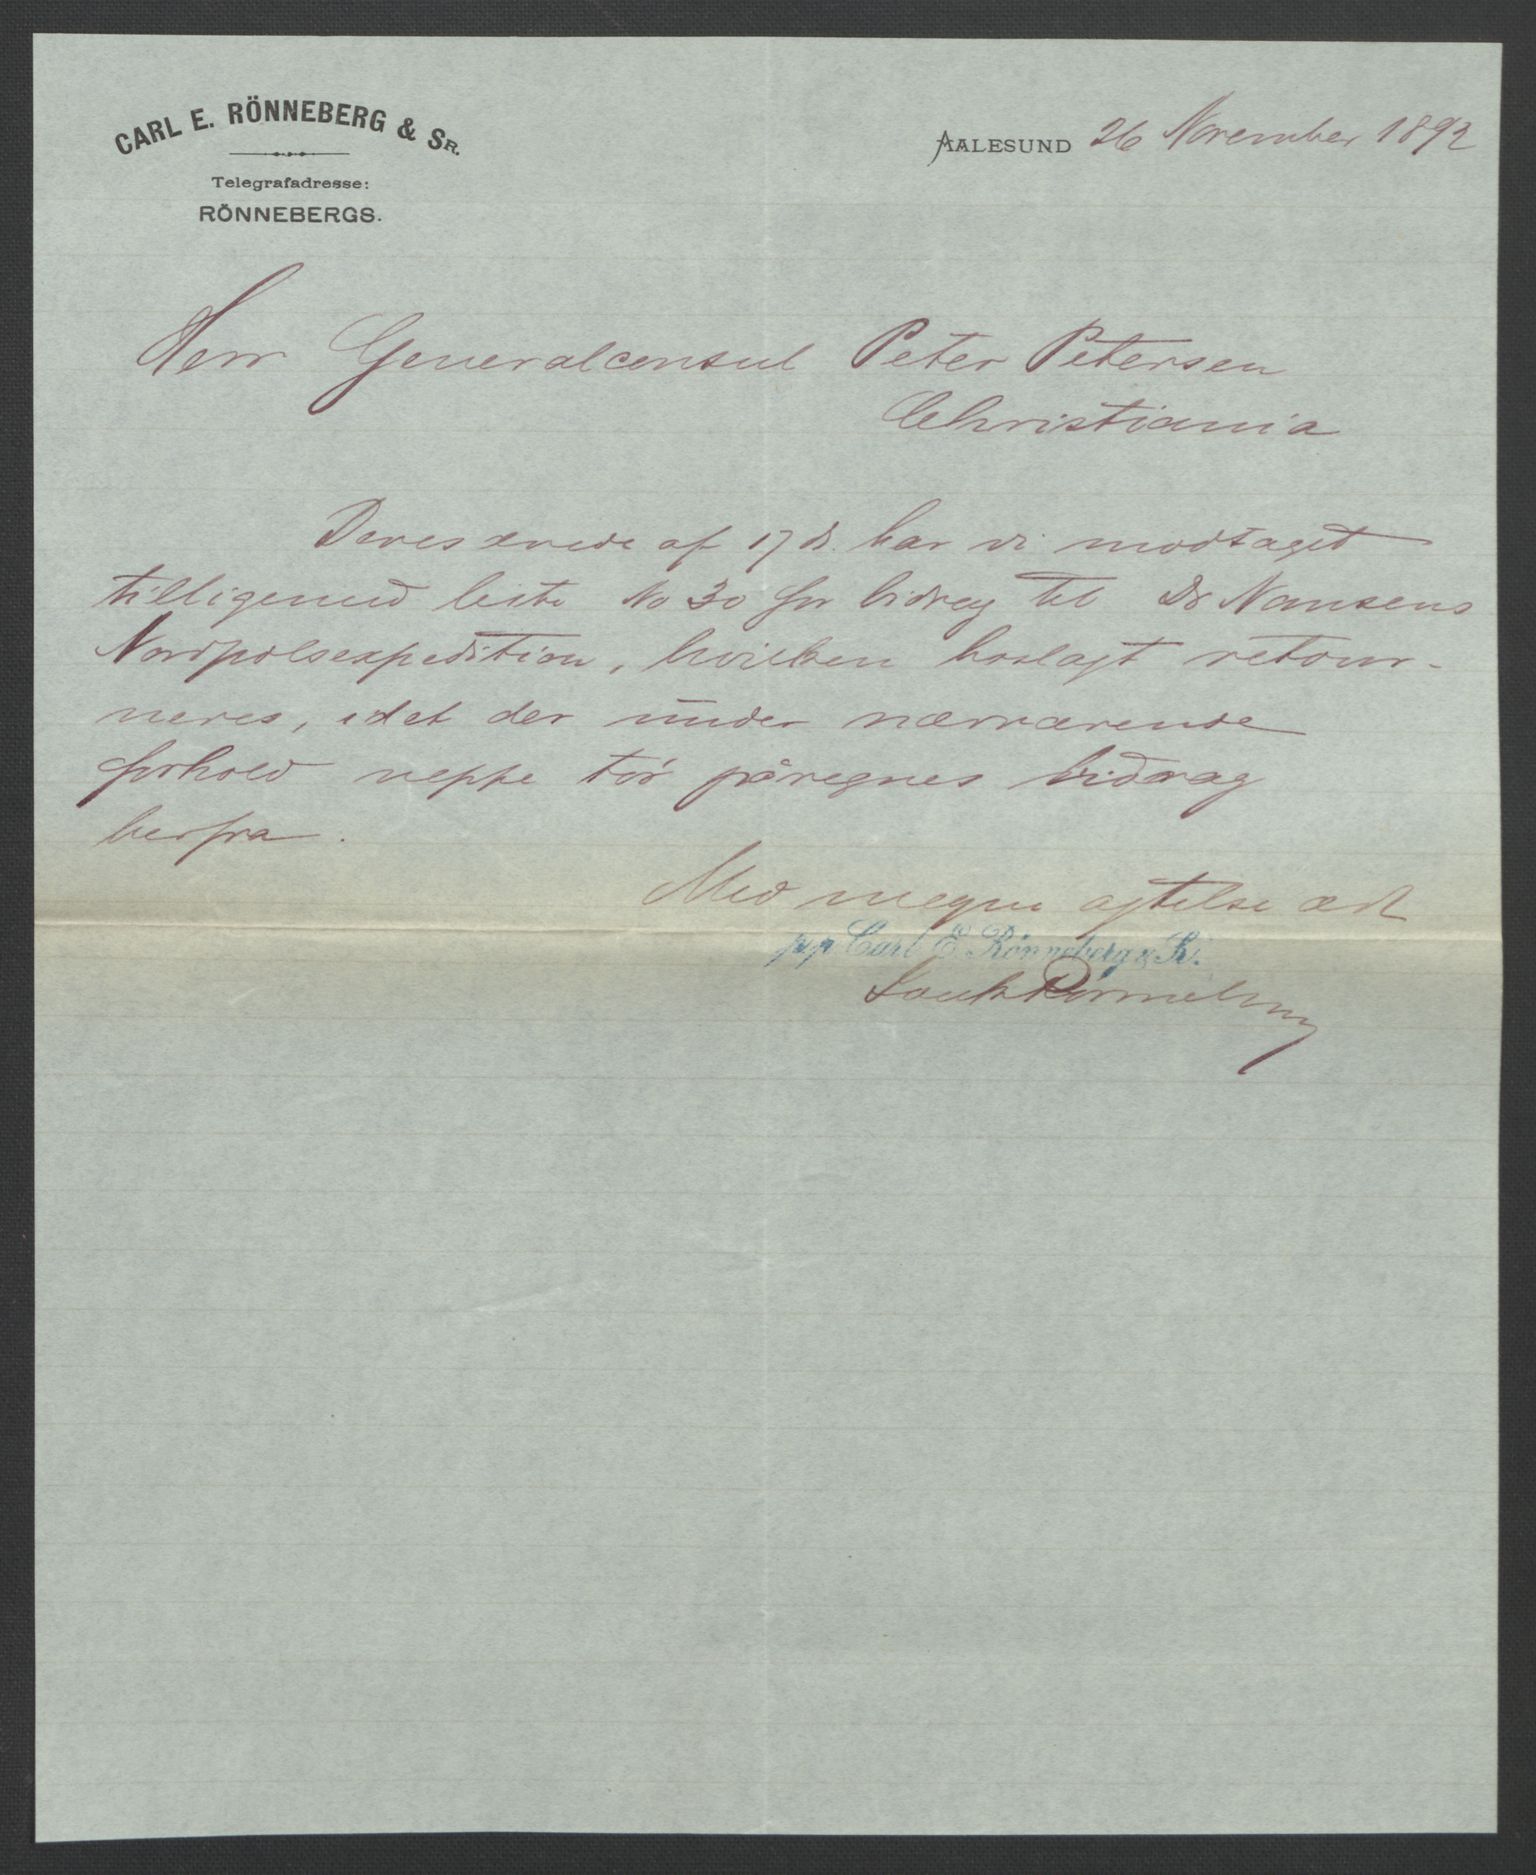 CARL E. RÖNNEBERG & SR.
Telegrafadresse:
RÖNNEBERGS.
AALESUND 26 November 1892
Herr Generalconsul Peter Petersen
Christiania
Deres ærede af 17 ds. har vi modtaget
tilligemed liste No 30 for bidrag til Dr Nansens
Nordpolsexpedition, hvilken hoslagt retour-
neres, idet der under nærværende
forhold neppe tør påregnes bidrag
herfra.
Med megen agtelse ærb
pp Carl E. Rönneberg & Sr.